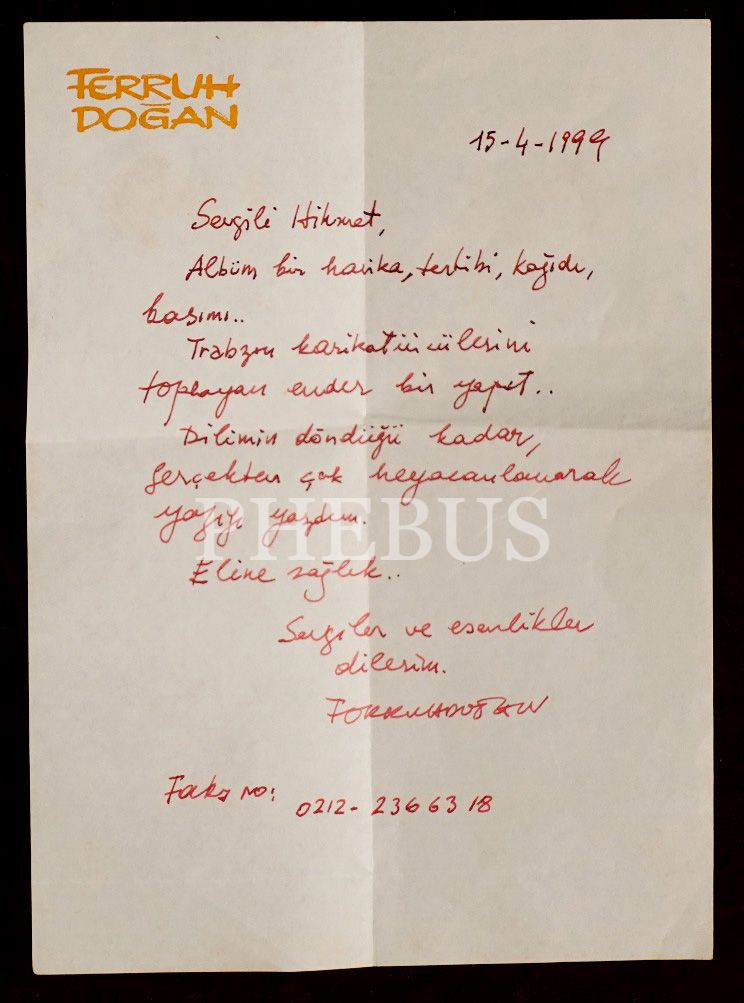 FERRUH
DOĞAN
15-4-1999
Sevgili Hikmet,
Albüm bir harika, tertibi, kağıdı,
basımı..
Trabzon karikatürcülerini
toplayan ender bir yapıt..
Dilimin döndüğü kadar,
gerçekten çok heyacanlanarak
yazıyı yazdım.
PHEBUS
Eline sağlık..
Sevgiler ve esenlikler
dilerim.
FERRUH DOĞAN
Faks no: 0212-236 63 18